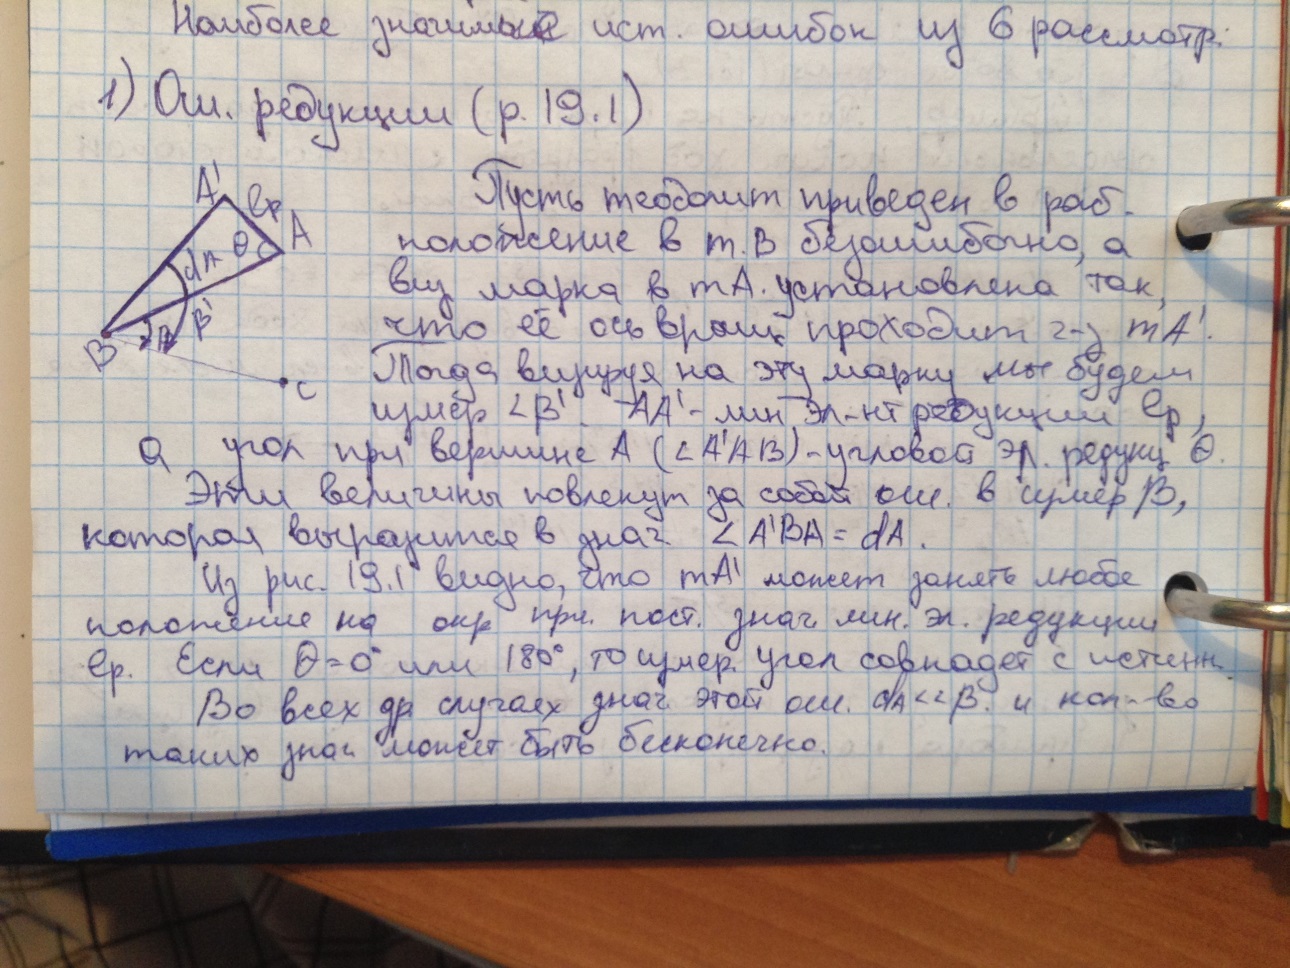 Наиболее значимые ист. ошибок из 6 рассмотр:
1) Ош. редукции (р. 19.1)
A'
eр
A
θ
dA
β'
β
B
C
Пусть теодолит приведен в раб.
положение в т. B безошибочно, а
виз марка в тA. установлена так,
что её ось вращ. проходит ч-з тA'.
Тогда визируя на эту марку мы будем
измер ∠β'. AA' - лин эл-нт редукции eр,
а угол при вершине A (∠A'AB) - угловой эл. редукц θ.
Эти величины повлекут за собой ош. в измер β,
которая выразится в знач ∠A'BA = dA.
Из рис. 19.1 видно, что тA' может занять любое
положение на окр при. пост. знач лин. эл. редукции
eр. Если θ=0° или 180°, то измер. угол совпадет с истинн.
Во всех др случаех знач этой ош. dA<<β. и кол-во
таких знач может быть бесконечно.